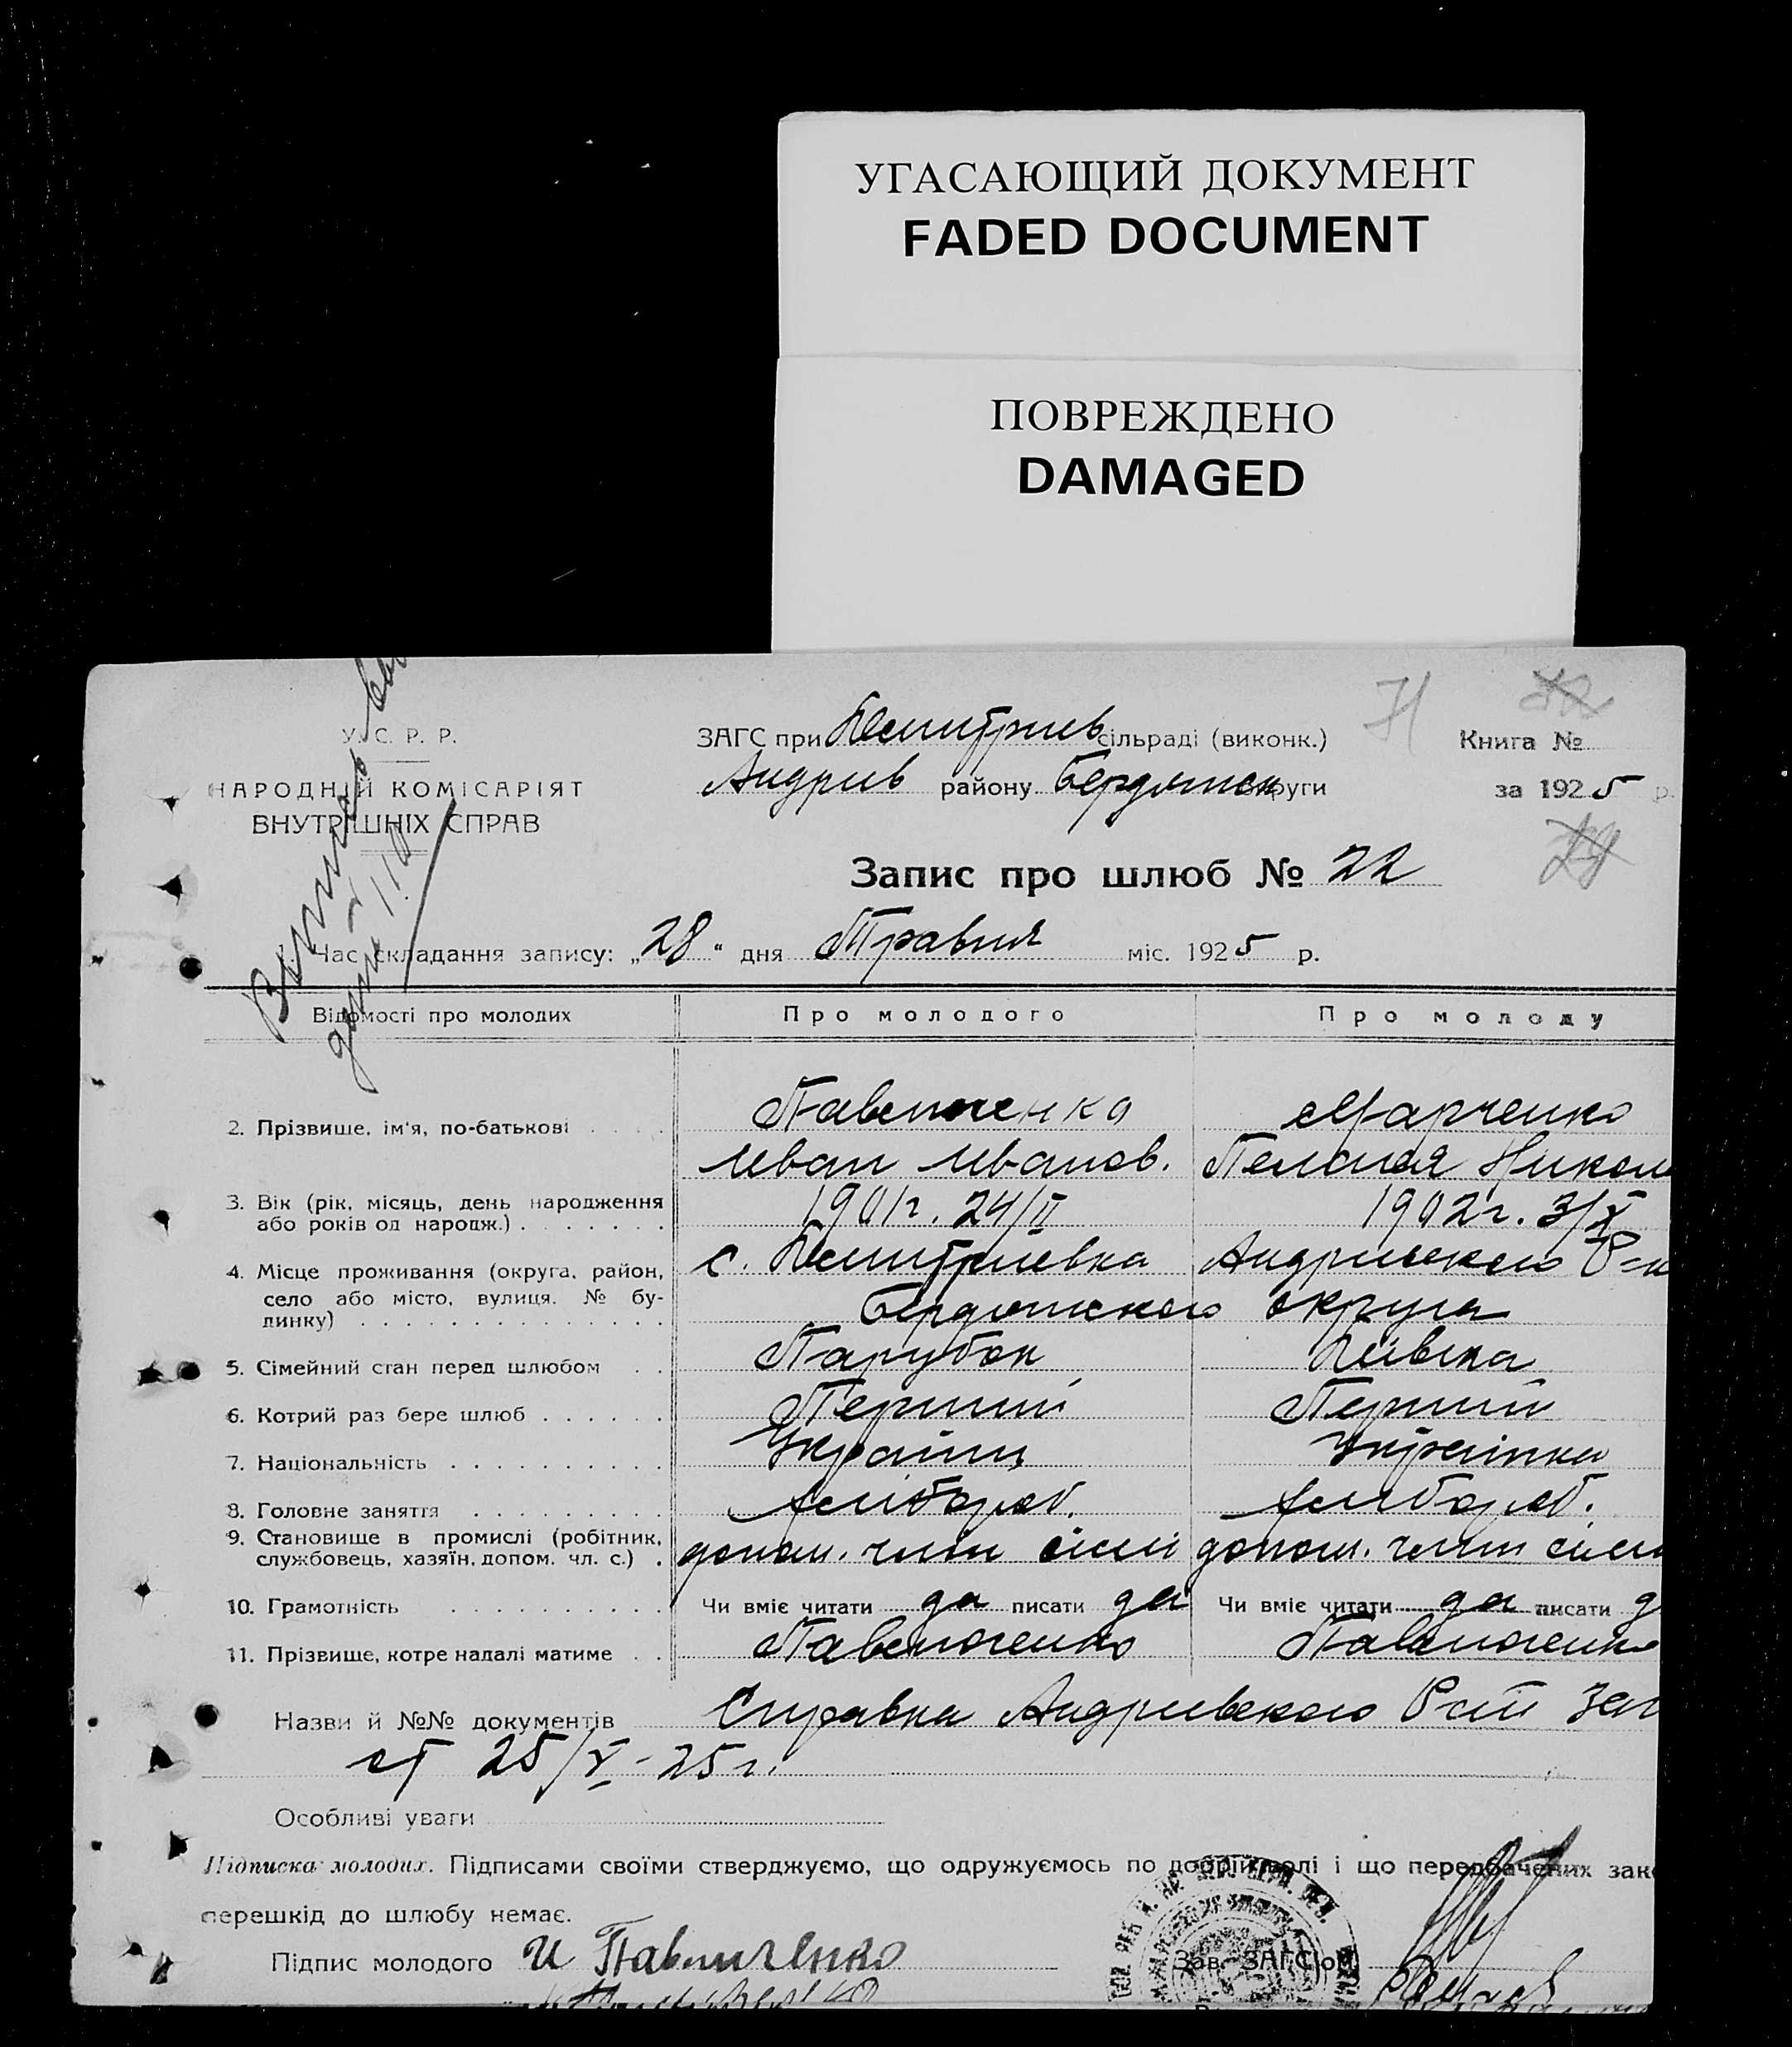 УГАСАЮЩИЙ ДОКУМЕНТ
FADED DOCUMENT
ПОВРЕЖДЕНО
DAMAGED
71
У. С. Р. Р.
НАРОДНІЙ КОМІСАРІЯТ
ВНУТРІШНІХ СПРАВ
ЗАГС при Дмитрив сільраді (виконк.)
Андрив району Бердянск округи
Книга №
за 1925 р.
Запис про шлюб № 22
1. Час складання запису: „28“ дня Травня міс. 1925 р.
Відомості про молодих Про молодого Про молоду
2. Прізвище, ім'я, по-батькові . . . . Павлюченко Марченко
Иван Иванов. Пелагея Никол
3. Вік (рік, місяць, день народження 1901г. 24/II 1902г. 3/X
або років од народж.) . . . . . . .
4. Місце проживання (округа, район, с. Дмитриевка Андриевского Р-н
село або місто, вулиця. № бу- Бердянского округа
динку) . . . . . . . . . . . . . .
5. Сімейний стан перед шлюбом . . Парубок Дівка
6. Котрий раз бере шлюб . . . . . . Перший Перший
7. Національність . . . . . . . . . . Українц Українка
8. Головне заняття . . . . . . . . . Хлібороб. Хлібороб.
9. Становище в промислі (робітник, допом. член сімї допом. член сім
службовець, хазяїн, допом. чл. с.) .
10. Грамотність . . . . . . . . . . Чи вміє читати да писати да Чи вміє читати да писати д
11. Прізвище, котре надалі матиме . . Павлюченко Павлюченко
Назви й №№ документів Справка Андриевского Заг
от 25/V-25г.
Особливі уваги
Підписка молодих. Підписами своїми стверджуємо, що одружуємось по добрій волі і що передбачених зако
перешкід до шлюбу немає.
Підпис молодого И Павличенко
Зав. ЗАГС'ом